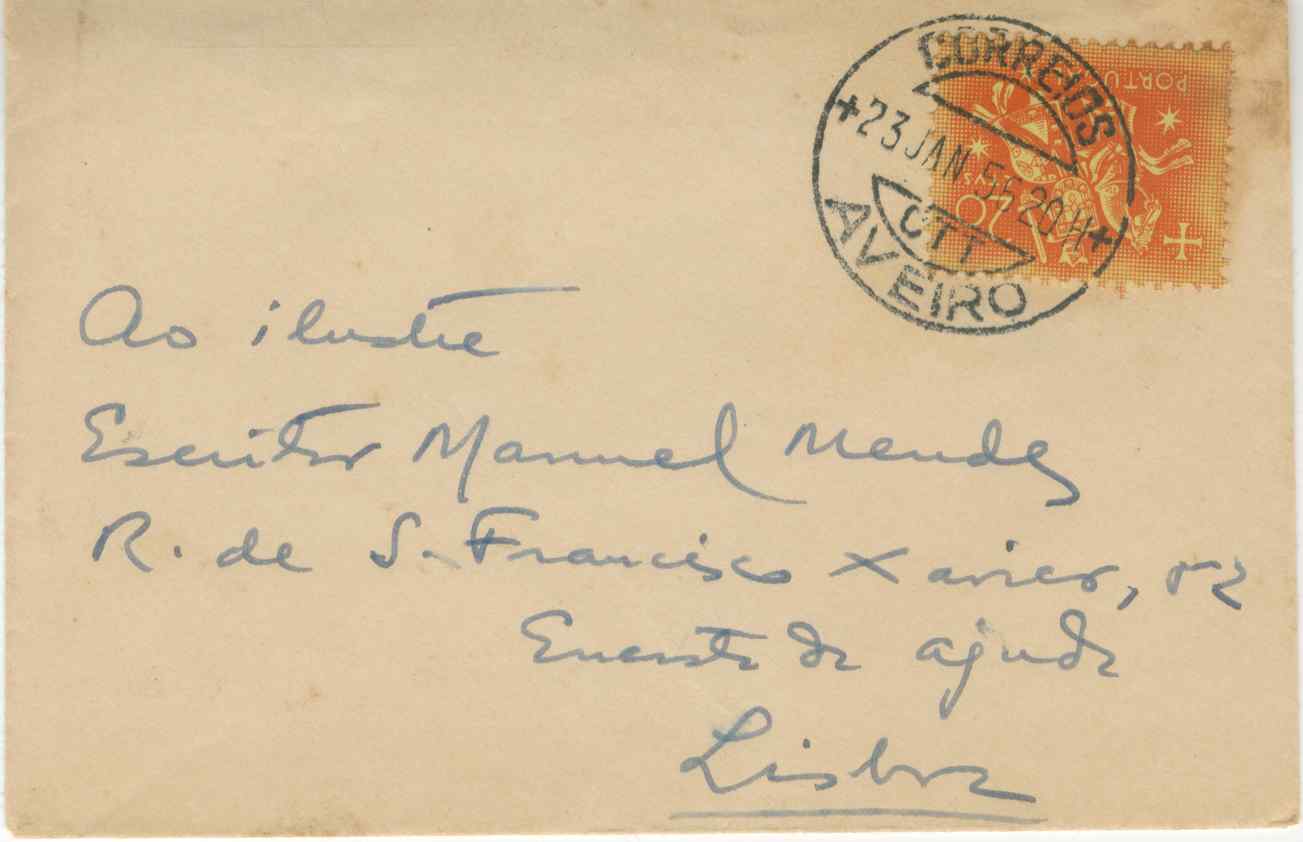 CORREIOS
+23 JAN 55 20 H+
CTT
AVEIRO
PORTUGAL
20
Ao ilustre
Escritor Manuel Mendes
R. de S. Francisco Xavier, 52
Encosta da Ajuda
Lisboa